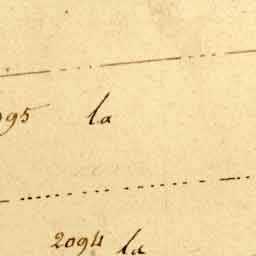 095 la
2094 la